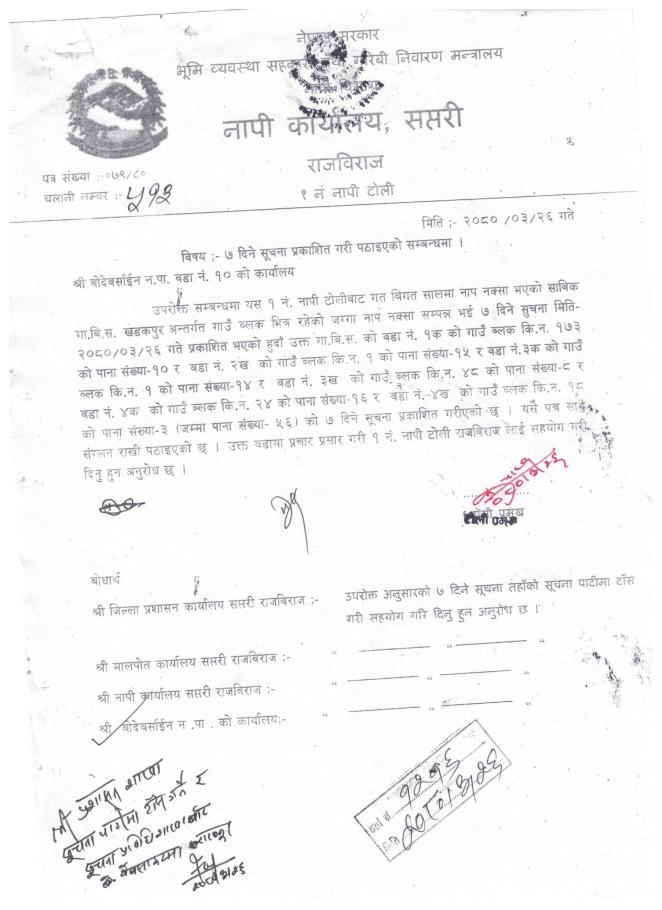 नेपाल सरकार
भूमि व्यवस्था सहकारी तथा गरिबी निवारण मन्त्रालय
नापी कार्यालय, सप्तरी
राजविराज
१ नं नापी टोली
पत्र संख्या :-०७९/८०
चलानी नम्वर :- ५१३
मिति ;- २०८० /०३/२६ गते
विषय ;- ७ दिने सूचना प्रकाशित गरी पठाइएको सम्बन्धमा ।
श्री बोदेबर्साईन न.पा. वडा नं. १० को कार्यालय
उपरोक्त सम्बन्धमा यस १ नं. नापी टोलीबाट गत बिगत सालमा नाप नक्सा भएको साबिक
गा.बि.स. खडकपुर अन्तर्गत गाउँ ब्लक भित्र रहेको जग्गा नाप नक्सा सम्पन्न भई ७ दिने सुचना मिति-
२०८०/०३/२६ गते प्रकाशित भएको हुदाँ उक्त गा.बि.स. को वडा नं. १क को गाउँ ब्लक कि.न. १७३
को पाना संख्या-१० र वडा नं. २ख को गाउँ ब्लक कि.न. १ को पाना संख्या-१५ र वडा नं.३क को गाउँ
ब्लक कि.न. १ को पाना संख्या-१४ र वडा नं. ३ख को गाउँ ब्लक कि.न. ४८ को पाना संख्या-८ र
वडा नं. ४क को गाउँ ब्लक कि.न. २४ को पाना संख्या-१६ र वडा नं. ४ख को गाउँ ब्लक कि.न. १८
को पाना संख्या-३ (जम्मा पाना संख्या- ५६) को ७ दिने सूचना प्रकाशित गरीएको छ । यसै पत्र साथ
संग्लन राखी पठाइएको छ । उक्त वडामा प्रचार प्रसार गरी १ नं. नापी टोली राजविराज लाई सहयोग गरी
दिनु हुन अनुरोध छ ।
टोली प्रमुख
बोधार्थ
श्री जिल्ला प्रशासन कार्यालय सप्तरी राजविराज ;- उपरोक्त अनुसारको ७ दिने सूचना तहाँको सूचना पाटीमा टाँस
गरी सहयोग गरि दिनु हुन अनुरोध छ ।
श्री मालपोत कार्यालय सप्तरी राजबिराज ;- " ———— " ———— "
श्री नापी कार्यालय सप्तरी राजविराज ;- " ———— " ———— "
श्री बोदेबर्साईन न .पा . को कार्यालय;- " ———— " ———— "
श्री प्रशासन शाखा
सूचना पाटीमा टाँस गर्ने र
सूचना प्रविधि शाखाबाट